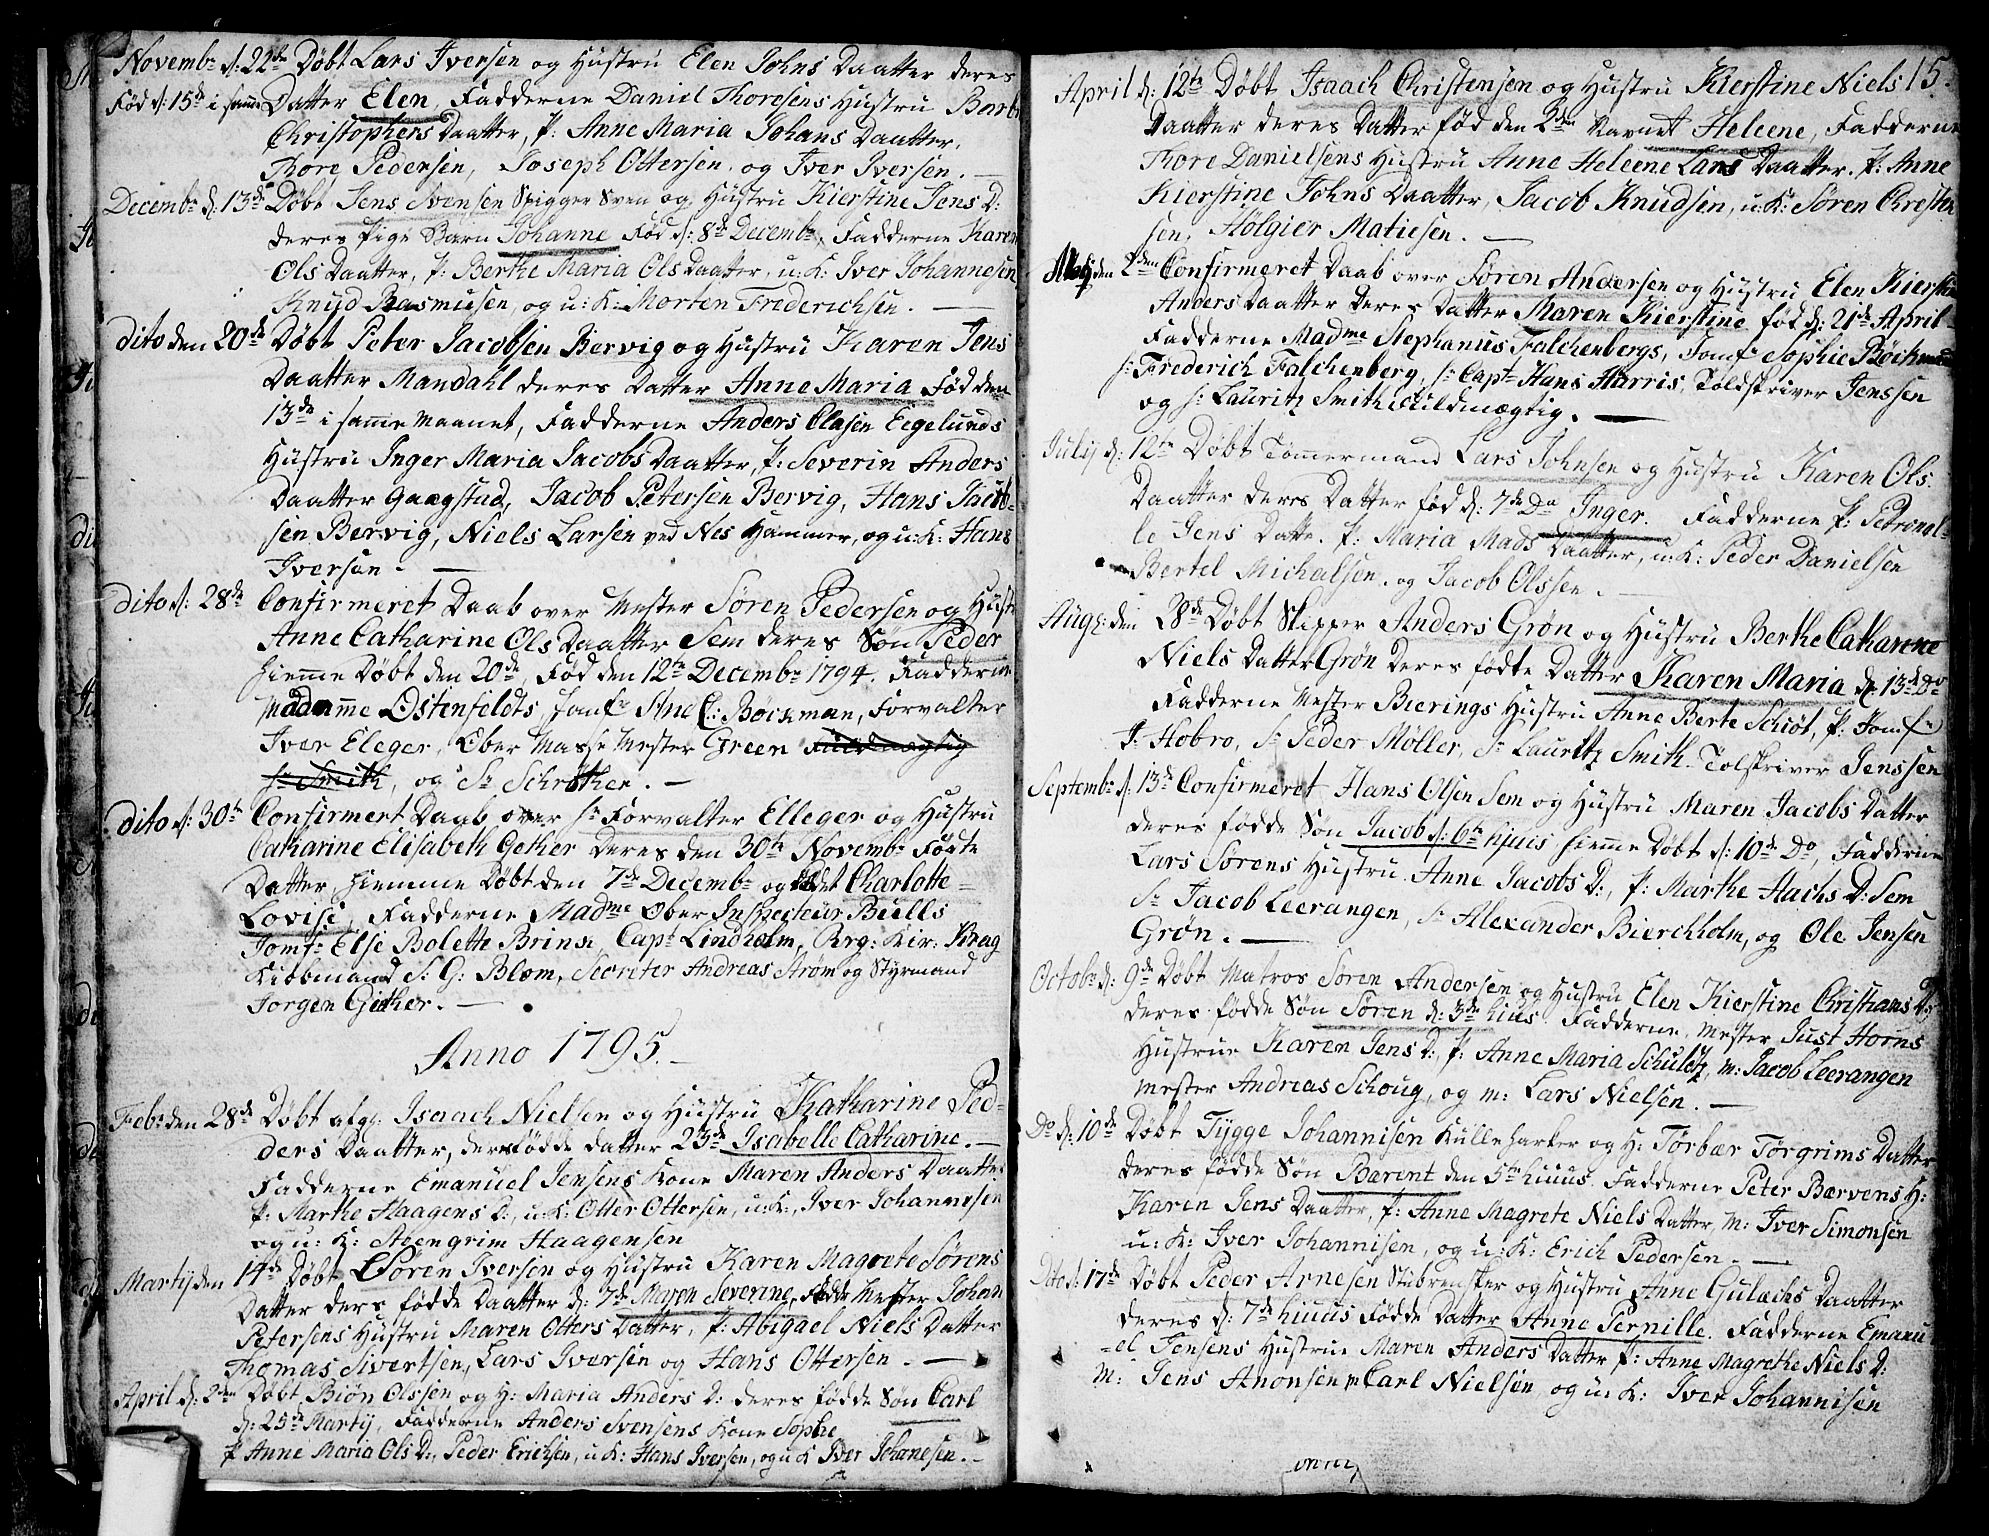 Novembr d: 22de Døbt Lars Iversen og Hustru Elen Johns Daatter deres
Fød d: 15de i samme Datter Elen, Fadderne Daniel Thoresens Hustru Barb
Christophers Daatter, P: Anne Maria Johans Daatter,
Thore Pedersen, Joseph Ottersen, og Iver Iversen. —
Decembr d: 13de Døbt Jens Svensen Spigger Sven og Hustru Kierstine Jens D:
deres Pige Barn Johanne Fød d: 8de Decembr, Fadderne Karen
Ols Daatter, P: Berthe Maria Ols Daatter, u: K: Iver Johannesen
Knud Rasmusen, og u: K: Morten Frederichsen. —
dito den 20de Døbt Peter Jacobsen Bervig og Hustru Karen Jens
Daatter Mandahl deres Datter Anne Maria Fød den
13de i samme Maanet, Fadderne Anders Clasen Eegelunds
Hustru Inger Maria Jacobs Daatter, P: Severin Anders
Daatter Gaagstad, Jacob Petersen Bervig, Hans Jacob-
sen Bervig, Niels Larsen ved Nes Hammer, og u: K: Hans
Iversen. —
dito d: 28de Confirmeret Daab over Mester Søren Pedersen og Hustr
Anne Catharine Ols Daatter Sem deres Søn Peder
hiemme Døbt den 20de, Fød den 12te Decembr 1794. Fadderne
Madamme Ostenfeldts, Jomfr Ane C: Bøckman, Forvalter
Iver Eleger, Ober Masse Mester Green Fuldmægtig
Sr Smith, og Sr Schrøther. —
dito d: 30te Confirmert Daab over Hr Forvalter Elleger og Hustru
Catharine Elisabeth Gether deres den 30te Novembr Fødte
Datter, hiemme Døbt den 7de Decembr og kaldet Charlotte
Lovise, Fadderne Madme Ober Inspecteur Bulls
Jomfr Else Bolette Brinx, Capt Lindholm, Rrg: Kir: Krag
Kiøbmand S: G: Blom, Secreter Andreas Strøm og Styrmand
Jorgen Gether. —
Anno 1795. —
Febr den 28de Døbt afg: Isaach Nielsen og Hustru Katharine Ped-
ders Daatter, deres fødde datter 23de Isabelle Catharine. —
Fadderne Emanuel Jensens Kone Maren Anders Daatter
P: Marthe Haagens D:, u: K: Otter Ottersen, u: K:, Iver Johannesen
og u: K: Steengrim Haagensen
Martij den 14de Døbt Søren Iversen og Hustru Karen Magrete Sørens
Datter ders fødde Daatter d: 7de Maren Severine, Fadde Mester Johan
Petersens Hustru Maren Otters Datter, P: Abigael Niels Datter
Thomas Sivertsen, Lars Iversen og Hans Ottersen. —
April d: 2den Døbt Biøn Olssen og H: Maria Anders D: deres fødde Søn Carl
d: 25de Martij, Fadderne Anders Svensens Kone Sophe
P Anne Maria Ols D:, Peder Erichsen, u K: Hans Iversen, og u K Iver Johanesen. —
15.
April d: 12te Døbt Isaach Christensen og Hustru Kierstine Niels
Daatter deres Datter fød den 2den Navnet Heleene, Fadderne
Thore Danielsens Hustru Anne Heleene Lars Daatter. P: Anne
Kierstine Johns Daatter, Jacob Knudsen, u: K: Søren Christen
sen, Holgier Matiesen. —
May den 2den Confirmeret Daab over Søren Andersen og Hustru Elen Kierstin
Anders Daatter Deres Datter Maren Kierstine fød d: 21de April
Fadderne Madme Stephanus Falchenbergs, Jomfr Sophie Bøckman
Sr Frederich Falchenberg, Sr Capt Hans Harris, Toldskriver Jenssen
og Sr Lauritz Smith Fuldmægtig. —
Julij d: 12te Døbt Tømmermand Lars Johnsen og Hustru Karen Ols
Daatter deres Datter fød d: 7de Do Inger. Fadderne P: Petronel-
le Jens Datte. P: Maria Mads Daatter, u: K: Peder Danielsen
Bertel Michalsen. og Jacob Olssen. —
Augt: den 28de Døbt Skipper Anders Grøn og Hustru Berthe Catharine
Niels Datter Grøn Deres fødte Datter Karen Maria d: 13de Do
Fadderne Mester Bierings Hustru Anne Berte Schiøt, P: Jomfr
P: Hobro, Sr Peder Møller, Sr Lauritz Smith. Tolskriver Jenssen
Septembr d: 13de Confirmeret Hans Olsen Sem og Hustru Maren Jacobs Datter
deres fødde Søn Jacob d: 6te hjuis hiemme Døbt d: 10de Do, Fadderne
Lars Sorens Hustru Anne Jacobs D:, P: Marthe Hachs D: Sem
Sr Jacob Leerangen, Sr Alexander Bierchholm, og Ole Jensen
Grøn. —
Octobr d: 9de Døbt Matros Soren Andersen og Hustru Elen Kierstine Christians D:
deres fødde Søn Søren d: 3de hius. Fadderne Mester Just Horns
Hustrue Karen Jens D: P: Anne Maria Schultz, M: Jacob Leerangen
Mester Andreas Schoug, og m: Lars Nielsen. —
Do d: 10de Døbt Tygge Johannisen Kulle harker og H: Torbær Torgrims Datter
deres fødde Søn Bærent den 5te huuus. Fadderne Peter Bærvens H:
Karen Jens Daatter, P: Anne Magrete Niels Datter, M: Iver Simonsen
u: K: Iver Johannisen, og u: K: Erich Pedersen. —
Dito d: 17de Døbt Peder Arnesen Stubrensker og Hustru Anne Gulachs Daatter
deres d: 7de huuis Fødde Datter Anne Pernille. Fadderne Emanu
-el Jensens Hustrue Maren Anders Datter P: Anne Magrethe Niels D:
M: Jens Anonsen M Carl Nielsen, og u: K: Iver Johannisen